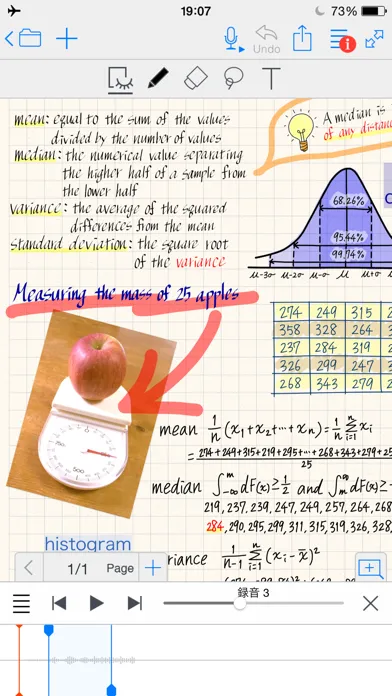 19:07
73%
Undo
T
mean: equal to the sum of the values
divided by the number of values
median: the numerical value separating
the higher half of a sample from
the lower half
variance: the average of the squared
differences from the mean
standard deviation: the square root
of the variance
A median is
of any distan
68.26%
95.44%
99.74%
μ-3σ μ-2σ μ-σ μ μ+σ
Measuring the mass of 25 apples
274 249 315 2
358 328 264 3
237 284 319
326 299 347
268 343 279 2
mean 1/n (x₁+x₂+···+xₙ)=1/n Σ xᵢ
n
i=1
=274+249+315+219+295+···+268+343+279+25
25
median ∫₋∞ᵐ dF(x)≥1/2 and ∫ₘ∞ dF(x)≥
219,237,239,247,249,257,264,268
284,290,295,299,311,315,319,326,328,
histogram
riance 1/n-1 Σ (xᵢ-x̄)²
n
i=1
1/1 Page
録音 3